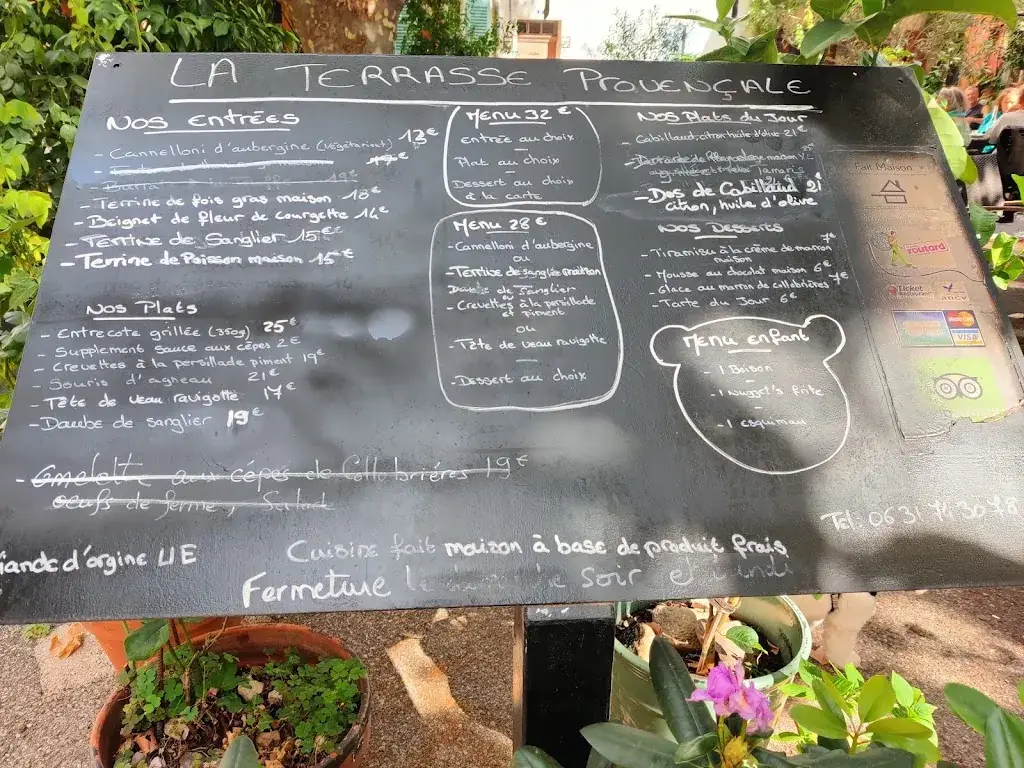 LA TERRASSE PROVENÇALE
Nos entrées
- Cannelloni d'aubergine (végétarien) 13€
- Terrine de fois gras maison 18€
- Beignet de fleur de courgette 14€
- Terrine de Sanglier 15€
- Terrine de Poisson maison 15€
Nos Plats
- Entrecote grillée (350g) 25€
- Supplement Sauce aux cèpes 2€
- Crevettes à la persillade piment 19€
- Souris d'agneau 21€
- Tête de veau ravigotte 17€
- Daube de sanglier 19€
- Omelette aux cépes de Collobriéres 19€
oeufs de ferme, Salad
Menu 32€
Entrée au choix
Plat au choix
Dessert au choix
à la carte
Menu 28€
- Cannelloni d'aubergine
ou
- Terrine de sanglier maison
Daube de Sanglier
- Crevettes à la persillade
et piment
ou
- Tête de veau ravigotte
- Dessert au choix
Nos Plats du Jour
- Cabillaud, citron, huile d'olive 21€
- Dos de Cabillaud 21
citron, huile d'olive
Nos Desserts
- Tiramisu à la crème de marron 7€
maison
- Mousse au chocolat maison 6€
- Glace au marron de collobrières 7€
- Tarte du Jour 6€
Menu enfant
- 1 Boison
-
- 1 Nugget's frite
-
- 1 esquimau
Fait Maison
routard
Ticket
Restaurant
ancv
MasterCard
VISA
Tel: 06 31 74 30 78
iande d'órgine UE
Cuisine fait maison à base de produit frais
Fermeture le soir et lundi